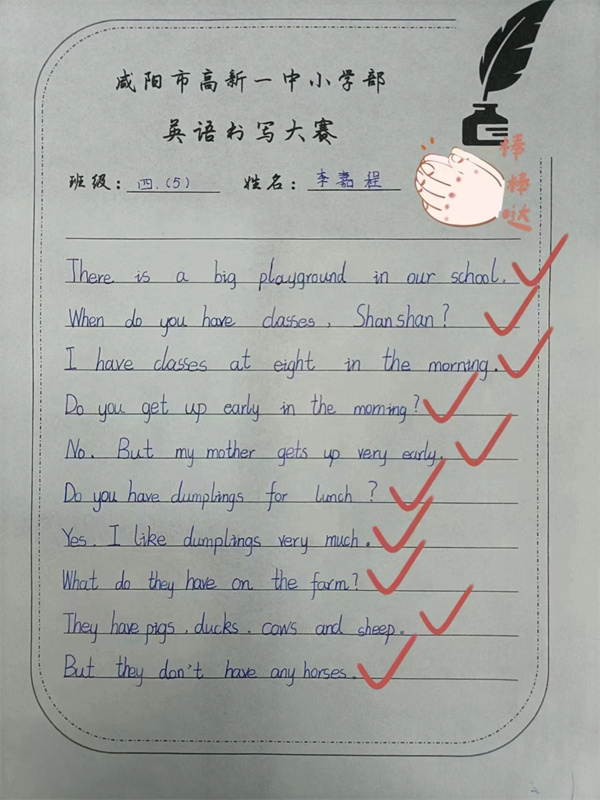 咸阳市高新一中小学部
英语书写大赛
班级：四.(5) 姓名：李嘉程
棒
棒
哒
There is a big playground in our school.
When do you have classes, Shanshan?
I have classes at eight in the morning.
Do you get up early in the morning?
No. But my mother gets up very early.
Do you have dumplings for lunch ?
Yes. I like dumplings very much.
What do they have on the farm?
They have pigs, ducks, cows and sheep.
But they don't have any horses.